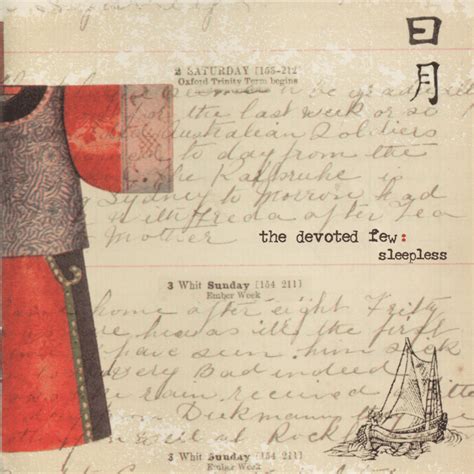 日
月
2 SATURDAY [153-212
Oxford Trinity Term begins
of the last week or so
Australian Soldiers
to day from the
The Karlsruhe is
Sydney to morrow had
with Freda after Tea
Mother
the devoted few:
sleepless
3 Whit Sunday [154 211]
Ember Week
home after eight Fritz
he was ill the first
have seen him sick
very Bad indeed
rain received a
at Rock